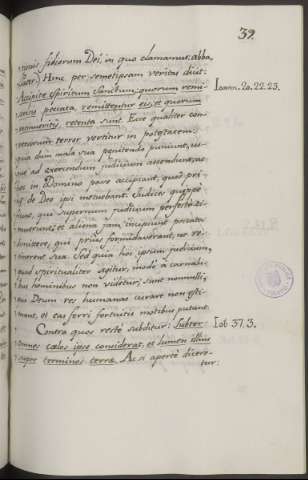 39.
tionis filiorum Dei, in quo clamamus: abba,
pater. Hinc per semetipsam veritas dicit:
Accipite Spiritum Sanctum, quorum remi-
seritis peccata, remittentur eis, et quorum
retinueritis, retenta sunt. Ecce qualiter con-
versorum terror vertitur in potestatem:
quia dum mala sua penitendo puniunt, us-
que ad exercendum judicium ascendunt, ut
hoc in Domino posse accipiant, quod pri-
us de Deo ipsi metuebant. Judices quippe
fiunt, qui supernum judicium perfectè ti-
muerunt; et aliena jam incipiunt peccata
dimittere, qui prius formidaverant, ne re-
tinerent sua. Sed quia hoc ipsum judicium,
quod spiritualiter agitur, modò à carnali-
bus hominibus non videtur, sunt nonnulli,
qui Deum res humanas curare non esti-
mant, et eas ferri fortuitis motibus putant.
Contra quos rectè subditur: Subter
omnes cælos ipse considerat, et lumen illius
super terminos terræ. Ac si apertè dicere-
tur:
Ioann. 20. 22. 23.
Iob 37. 3.